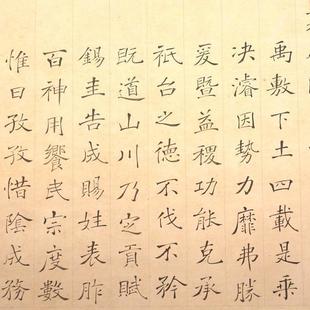 禹敷下土四載是乘
決濬因勢力靡弗勝
爰暨益稷功能克承
祇台之德不伐不矜
既道山川乃定貢賦
錫圭告成賜姓表胙
百神用饗民宗度數
惟日孜孜惜陰成務